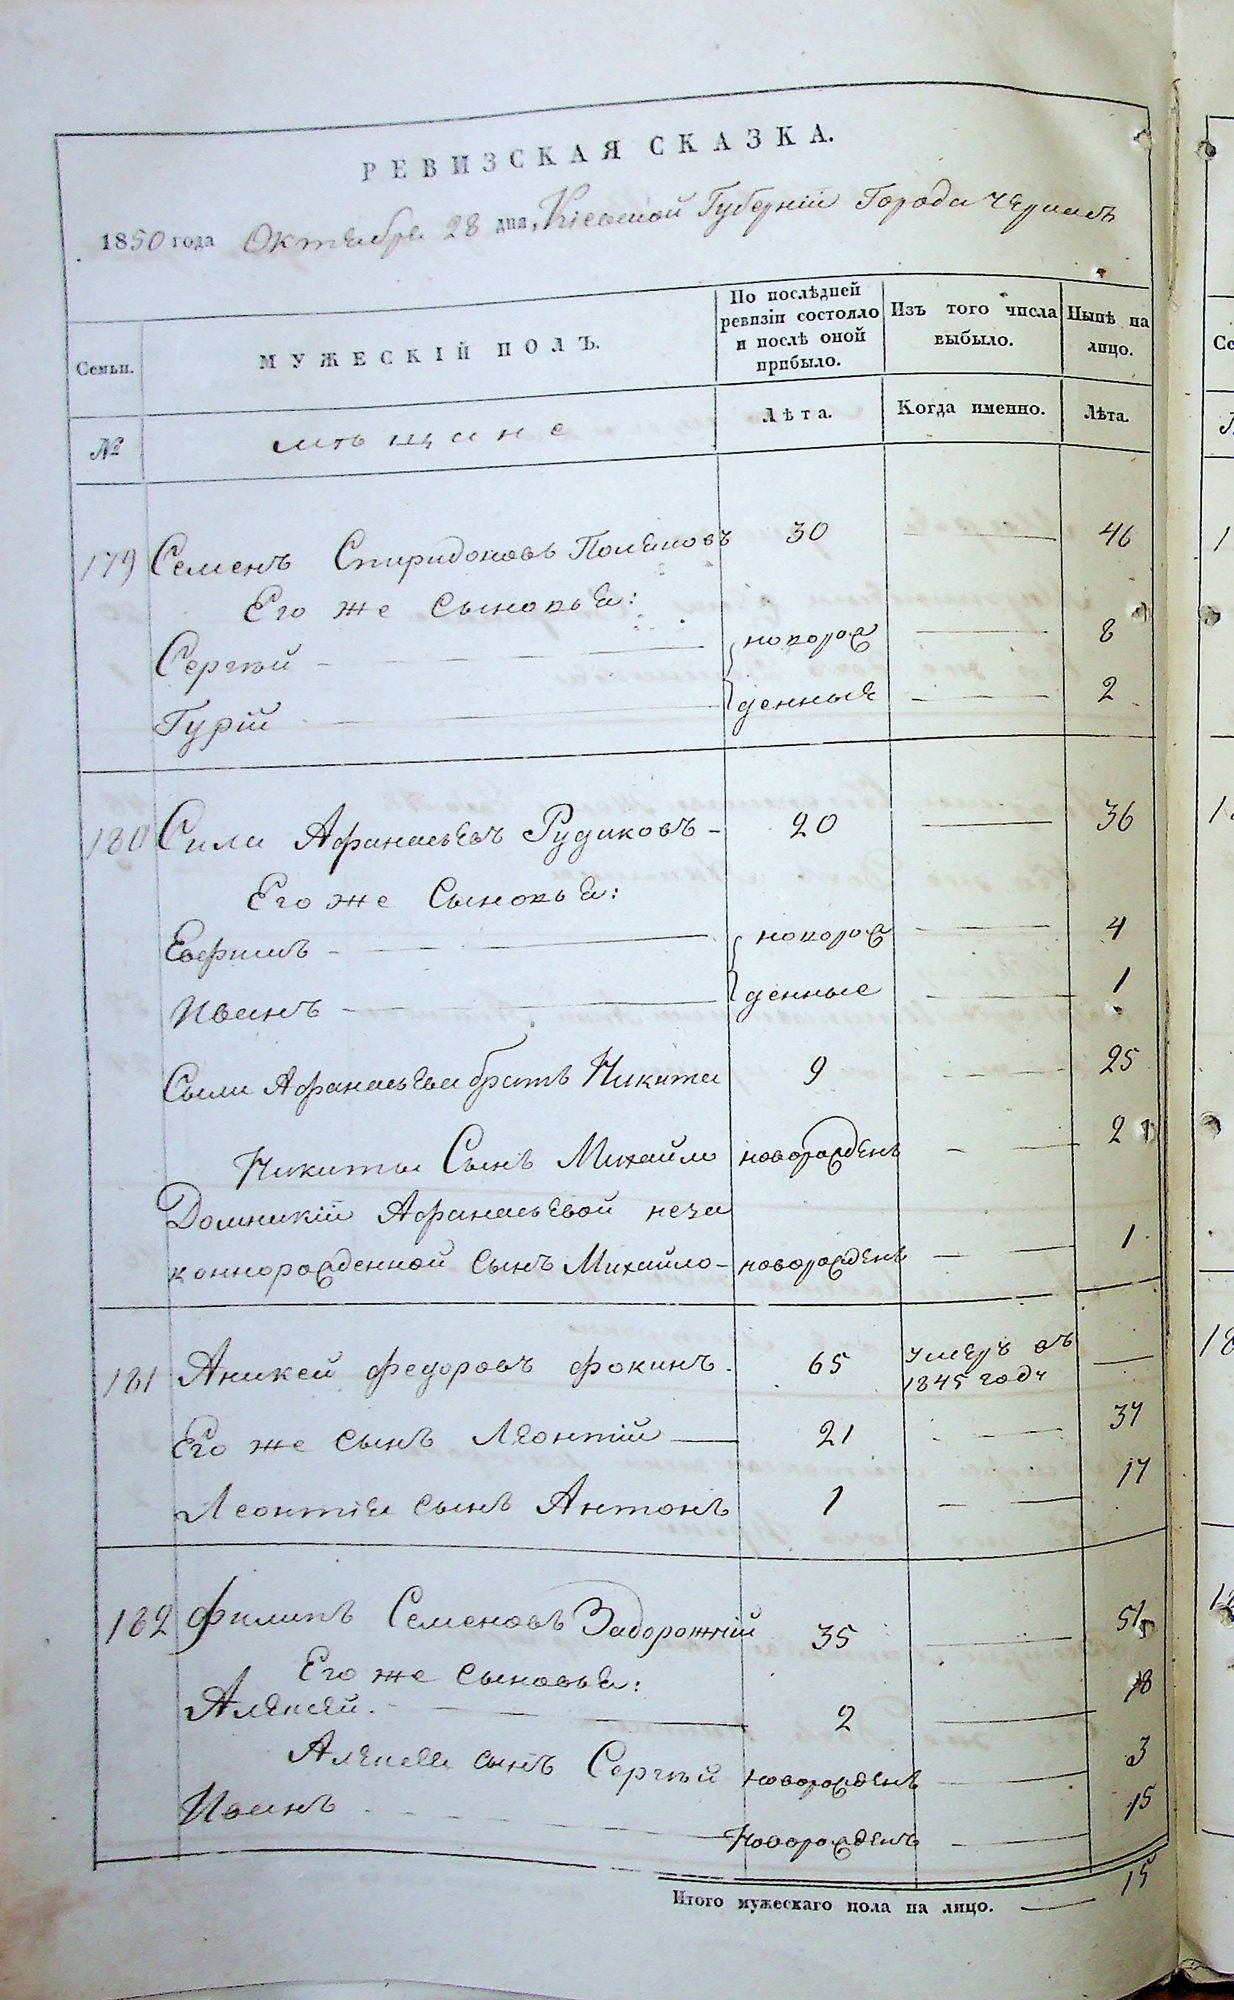 РЕВИЗСКАЯ СКАЗКА.
1850 года Октября 28 дня, Кіевской Губерніи Города Черкасъ
Семьи.
МУЖЕСКІЙ ПОЛЪ.
По послѣдней ревизіи состояло и послѣ оной прибыло.
Изъ того числа выбыло.
Нынѣ на лицо.
№
мѣщане
Лѣта.
Когда именно.
Лѣта.
179 Семенъ Спиридоновъ Поляковъ 30 — 46
Его же сыновья:
Сергѣй — новорож — 8
Гурій — денные — 2
180 Сила Афанасьевъ Рудаковъ — 20 — 36
Его же Сыновья:
Евфимъ — новорож — 4
Иванъ — денные — 1
Сылы Афанасьева братъ Никита 9 — 25
Никиты Сынъ Михайло новорожденъ — 2
Домникіи Афанасьевой неза
коннорожденной сынъ Михайло — новорожденъ — 1
181 Аникей федоровъ фокинъ. 65 умеръ въ 1845 году —
Его же сынъ Леонтій — 21 — 37
Леонтія сынъ Антонъ 1 — 17
182 Филипъ Семеновъ Задорожній 35 — 51
Его же сыновья:
Алексей. — 2 — 18
Алексея сынъ Сергѣй новорожденъ — 3
Иванъ — Новорожденъ — 15
Итого мужескаго пола на лицо. — 15